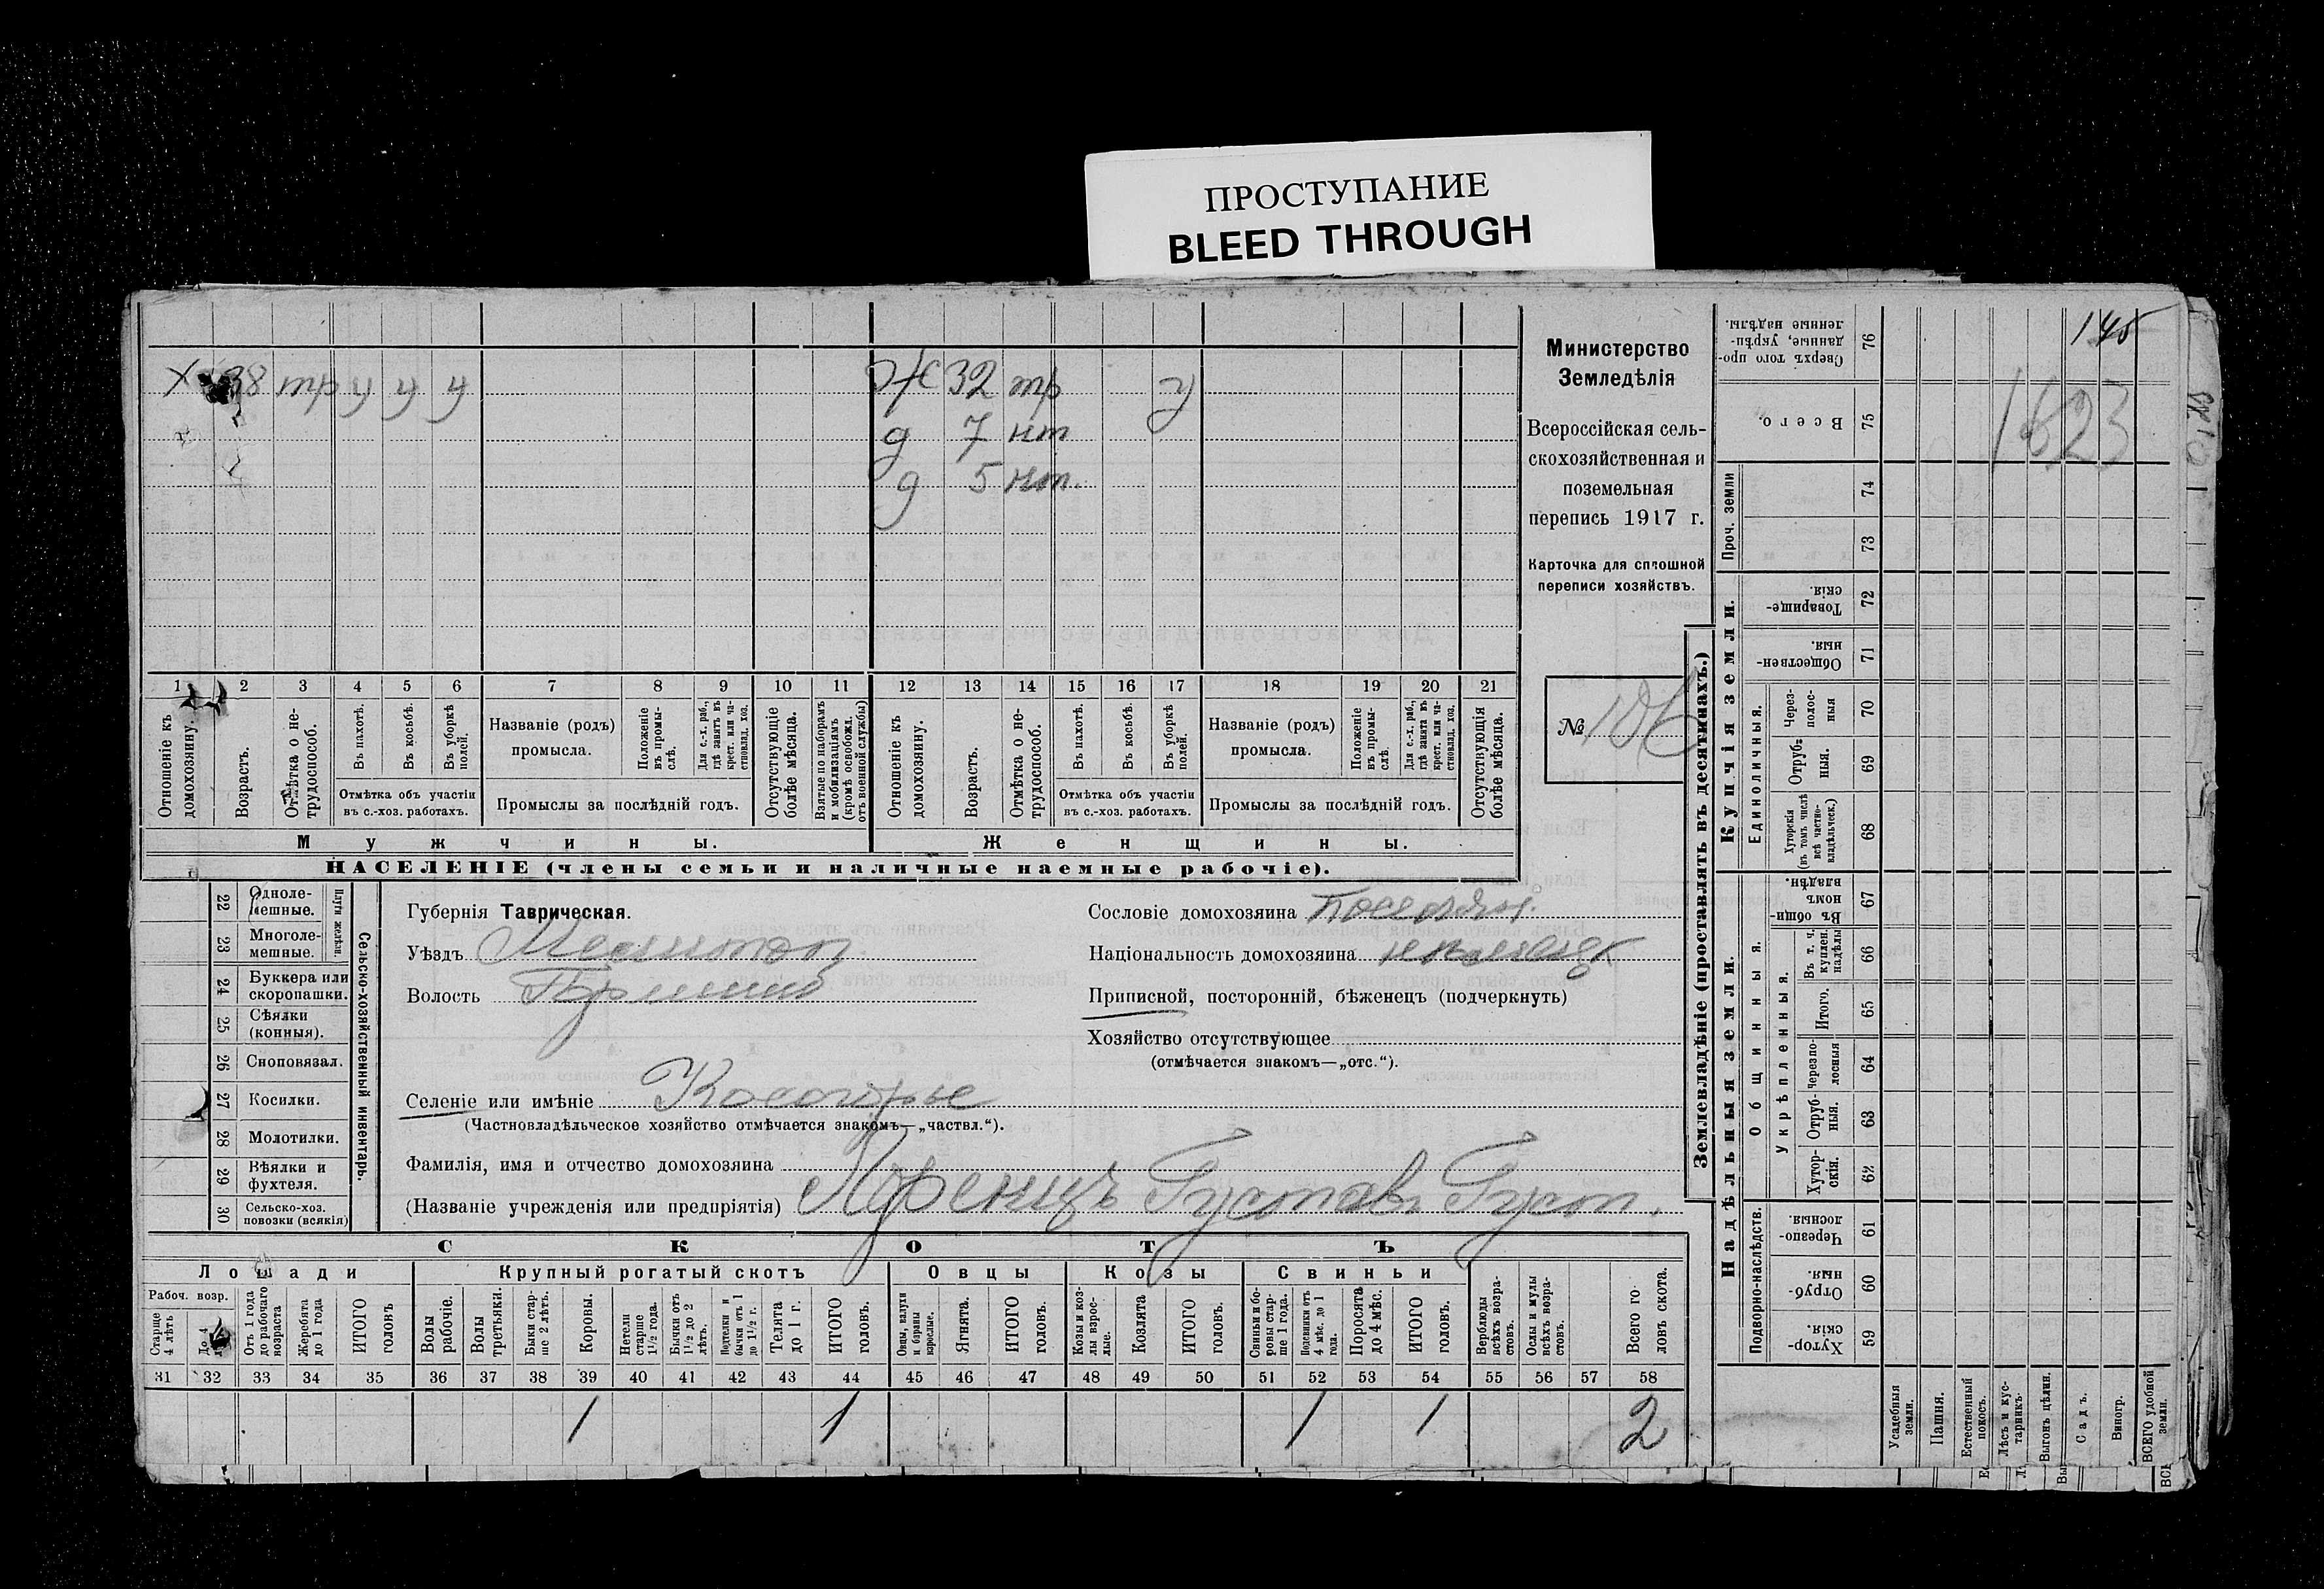 ПРОСТУПАНИЕ
BLEED THROUGH
145
1623
Х 38 тр у у у
Ж 32 тр у
д 7 нт
д 5 нт.
1 2 3 4 5 6 7 8 9 10 11 12 13 14 15 16 17 18 19 20 21
Отношеніе къ домохозяину.
Возрастъ.
Отмѣтка о нетрудоспособ.
Въ пахотѣ.
Въ косьбѣ.
Въ уборкѣ полей.
Отмѣтка объ участіи
въ с.-хоз. работахъ.
Названіе (родъ)
промысла.
Положеніе въ промыслѣ.
Для с.-х. раб., гдѣ занятъ въ крест. или частновлад. хоз.
Промыслы за послѣдній годъ.
Отсутствующіе болѣе мѣсяца.
Взятые по наборамъ и мобилизаціямъ (кромѣ освобожд. отъ военной службы)
Отношеніе къ домохозяину.
Возрастъ.
Отмѣтка о нетрудоспособ.
Въ пахотѣ.
Въ косьбѣ.
Въ уборкѣ полей.
Отмѣтка объ участіи
въ с.-хоз. работахъ.
Названіе (родъ)
промысла.
Положеніе въ промыслѣ.
Для с.-х. раб., гдѣ занята въ крест. или частновлад. хоз.
Промыслы за послѣдній годъ.
Отсутствующія болѣе мѣсяца.
Мужчины.
Женщины.
НАСЕЛЕНІЕ (члены семьи и наличные наемные рабочіе).
Министерство
Земледѣлія
Всероссійская сель-
скохозяйственная и
поземельная
перепись 1917 г.
Карточка для сплошной
переписи хозяйствъ.
№ 106
22 Одноле-
мешные.
23 Многоле-
мешные.
Плуги желѣзн.
24 Буккера или
скоропашки.
25 Сѣялки
(конныя).
26 Сноповязал.
27 Косилки.
28 Молотилки.
29 Вѣялки и
фухтеля.
30 Сельско-хоз.
повозки (всякія)
Сельско-хозяйственный инвентарь.
Губернія Таврическая.
Уѣздъ Мелитоп
Волость
Селеніе или имѣніе Косогорье
(Частновладѣльческое хозяйство отмѣчается знакомъ—„частвл.“).
Фамилія, имя и отчество домохозяина
(Названіе учрежденія или предпріятія) Лоренцъ Густавъ Густ.
Сословіе домохозяина поселян.
Національность домохозяина
Приписной, посторонній, бѣженецъ (подчеркнуть)
Хозяйство отсутствующее
(отмѣчается знакомъ—„отс.“).
СКОТЪ
Лошади
Крупный рогатый скотъ
Овцы
Козы
Свиньи
Рабоч. возр.
Старше 4 лѣтъ
До 4
Отъ 1 года до рабочаго возраста
Жеребята до 1 года
ИТОГО головъ
Волы рабочіе.
Волы третьяки.
Быки старше 2 лѣтъ.
Коровы.
Нетели старше 1½ года.
Бычки отъ 1½ до 2 лѣтъ.
Подтелки и бычки отъ 1 до 1½ г.
Телята до 1 г.
ИТОГО головъ.
Овцы, валухи и бараны взрослые.
Ягнята.
ИТОГО головъ.
Козы и козлы взрослые.
Козлята
ИТОГО головъ.
Свиньи и боровы старше 1 года.
Подсвинки отъ 4 мѣс. до 1 года.
Поросята до 4 мѣс.
ИТОГО головъ.
Верблюды всѣхъ возрастовъ.
Ослы и мулы всѣхъ возрастовъ.
Всего головъ скота.
31 32 33 34 35 36 37 38 39 40 41 42 43 44 45 46 47 48 49 50 51 52 53 54 55 56 57 58
1 1 1 1 2
Землевладѣніе (проставлять въ десятинахъ.)
Купчія земли.
Сверхъ того проданные, укрѣпленные надѣлы. 76
Всего. 75
Проч. земли
74
73
Товарищескія. 72
Общественныя. 71
Единоличныя.
Черезполосныя 70
Отрубныя. 69
Хуторскія (въ томъ числѣ всѣ частновладѣльческ.) 68
Надѣльныя земли.
Общинныя.
Въ общинномъ владѣн. 67
Укрѣпленныя.
Въ т. ч. куплен. надѣлы 66
Итого. 65
Черезполосныя 64
Отрубныя. 63
Хуторскія. 62
Подворно-наслѣдств.
Черезполосныя 61
Отрубныя. 60
Хуторскія 59
Усадебныя земли.
Пашня.
Естественный покосъ.
Лѣсъ и кустарникъ.
Выгонъ цѣлин.
Садъ.
Виногр.
ВСЕГО удобной земли.